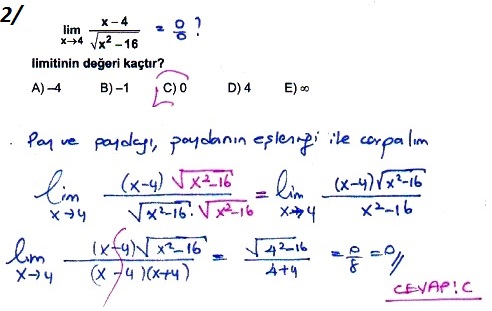 2/
lim x→4 x−4 / √x²−16 = 0/0 ?
limitinin değeri kaçtır?
A) –4 B) –1 C) 0 D) 4 E) ∞
. Pay ve paydayı, paydanın eşleniği ile çarpalım
lim x→4 (x-4) √x²-16 / √x²-16 . √x²-16 = lim x→4 (x-4)√x²-16 / x²-16
lim x→4 (x-4)√x²-16 / (x-4)(x+4) = √4²-16 / 4+4 = 0/8 = 0//
CEVAP: C